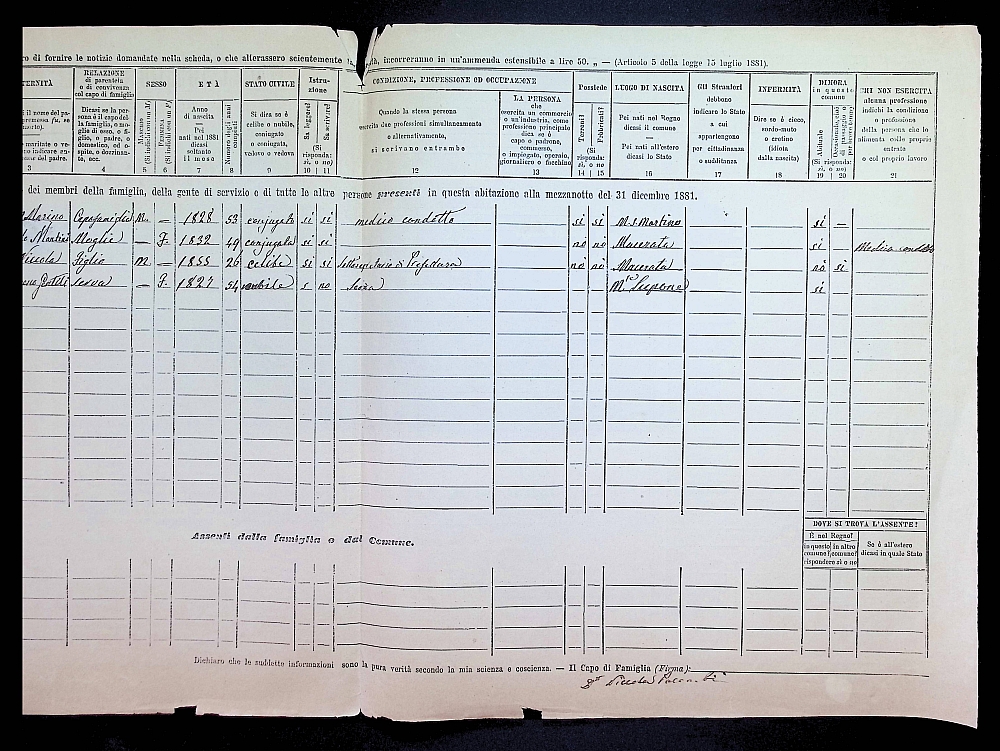 di fornire le notizie domandate nella scheda, o che alterassero scientemente incorreranno in un'ammenda estensibile a lire 50. „ — (Articolo 5 della legge 15 luglio 1881).
RELAZIONE di parentela o di convivenza col capo di famiglia
SESSO
ETÀ
STATO CIVILE
Istruzione
CONDIZIONE, PROFESSIONE OD OCCUPAZIONE
Possiede
LUOGO DI NASCITA
Gli Stranieri debbono indicare lo Stato a cui appartengono per cittadinanza o sudditanza
INFERMITÀ
DIMORA in questo comune
CHI NON ESERCITA alcuna professione indichi la condizione o professione della persona che lo alimenta colle proprie entrate o col proprio lavoro
Dicasi se la persona è il capo della famiglia, o moglie di esso, o figlio, o padre, o domestico, od ospite, o dozzinante, ecc.
MASCHI (Si indichi con un M)
FEMMINA (Si indichi con un F)
Anno di nascita — Pei nati nel 1881 dicasi soltanto il mese
Numero degli anni compiuti
Si dica se è celibe o nubile, coniugato o coniugata, vedovo o vedova
Sa leggere?
Sa scrivere?
(Si risponda: sì, o no)
Quando la stessa persona esercita due professioni simultaneamente o alternativamente, si scrivano entrambe
LA PERSONA che esercita un commercio o un'industria, come professione principale dica se è capo o padrone, commesso, o impiegato, operaio, giornaliero o facchino
Terreni?
Fabbricati?
(Si risponda: sì, o no)
Pei nati nel Regno dicasi il comune — Pei nati all'estero dicasi lo Stato
Dire se è cieco, sordo-muto o cretino (idiota dalla nascita)
Abituale
(Si risponda: sì, o no)
3 4 5 6 7 8 9 10 11 12 13 14 15 16 17 18 19 20 21
dei membri della famiglia, della gente di servizio e di tutte le altre persone presenti in questa abitazione alla mezzanotte del 31 dicembre 1881.
Marino Capofamiglia M. — 1828 53 conjugato si si medico condotto si si M. S. Martino si —
Moglie — F. 1832 49 conjugata si si no no Macerata si Medico condotto
Figlio M — 1855 26 celibe si si di Prefettura no no Macerata no si
serva — F. 1827 54 nubile no Serva si
Assenti dalla famiglia o dal Comune.
DOVE SI TROVA L'ASSENTE?
È nel Regno?
in questo comune?
in altro comune?
rispondere sì o no
Se è all'estero dicasi in quale Stato
Dichiaro che le suddette informazioni sono la pura verità secondo la mia scienza e coscienza. — Il Capo di Famiglia (Firma):